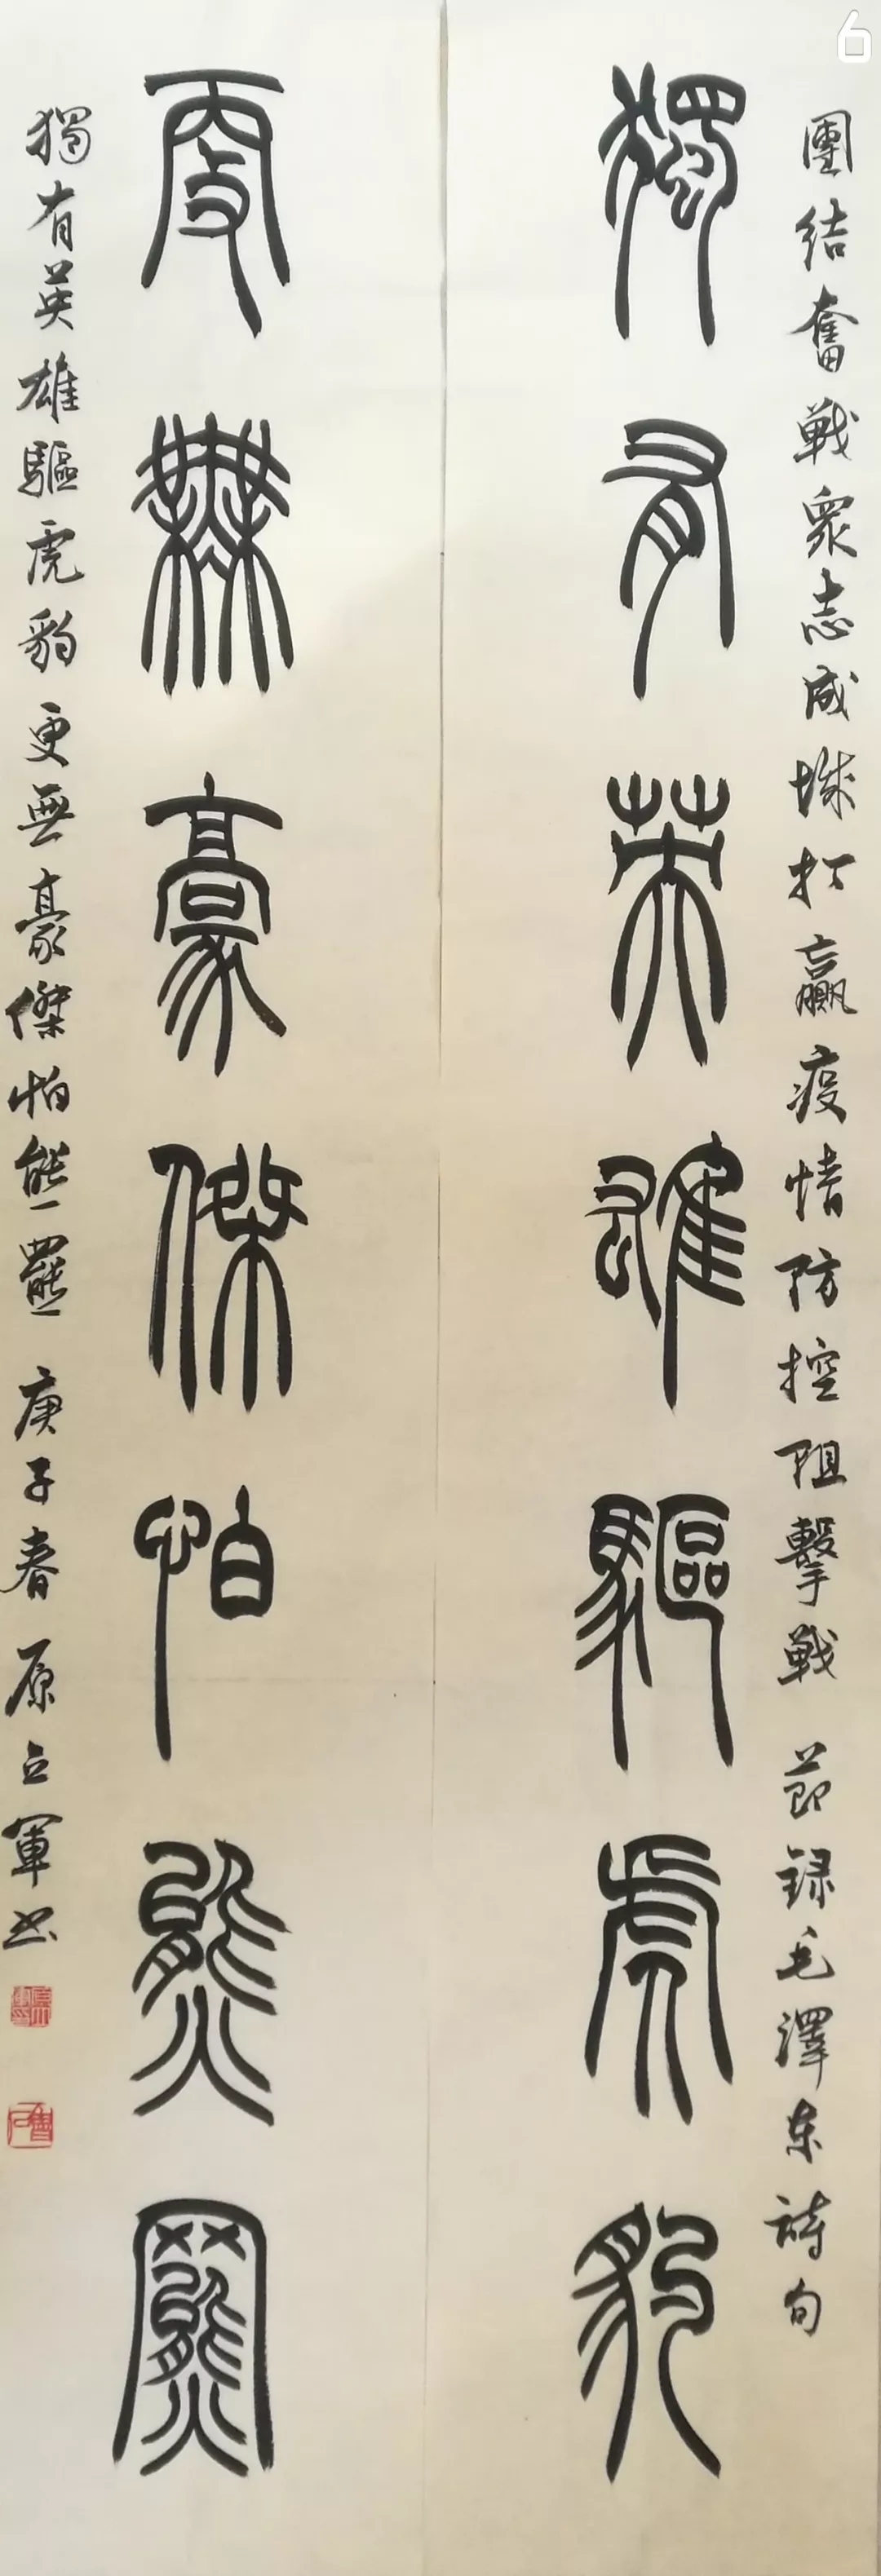 團结奮戰衆志成城打贏疫情防控阻擊戰 节録毛澤东詩句
獨有英雄驅虎豹
更無豪傑怕熊羆
獨有英雄驅虎豹更無豪傑怕熊羆 庚子春 原立軍书
6